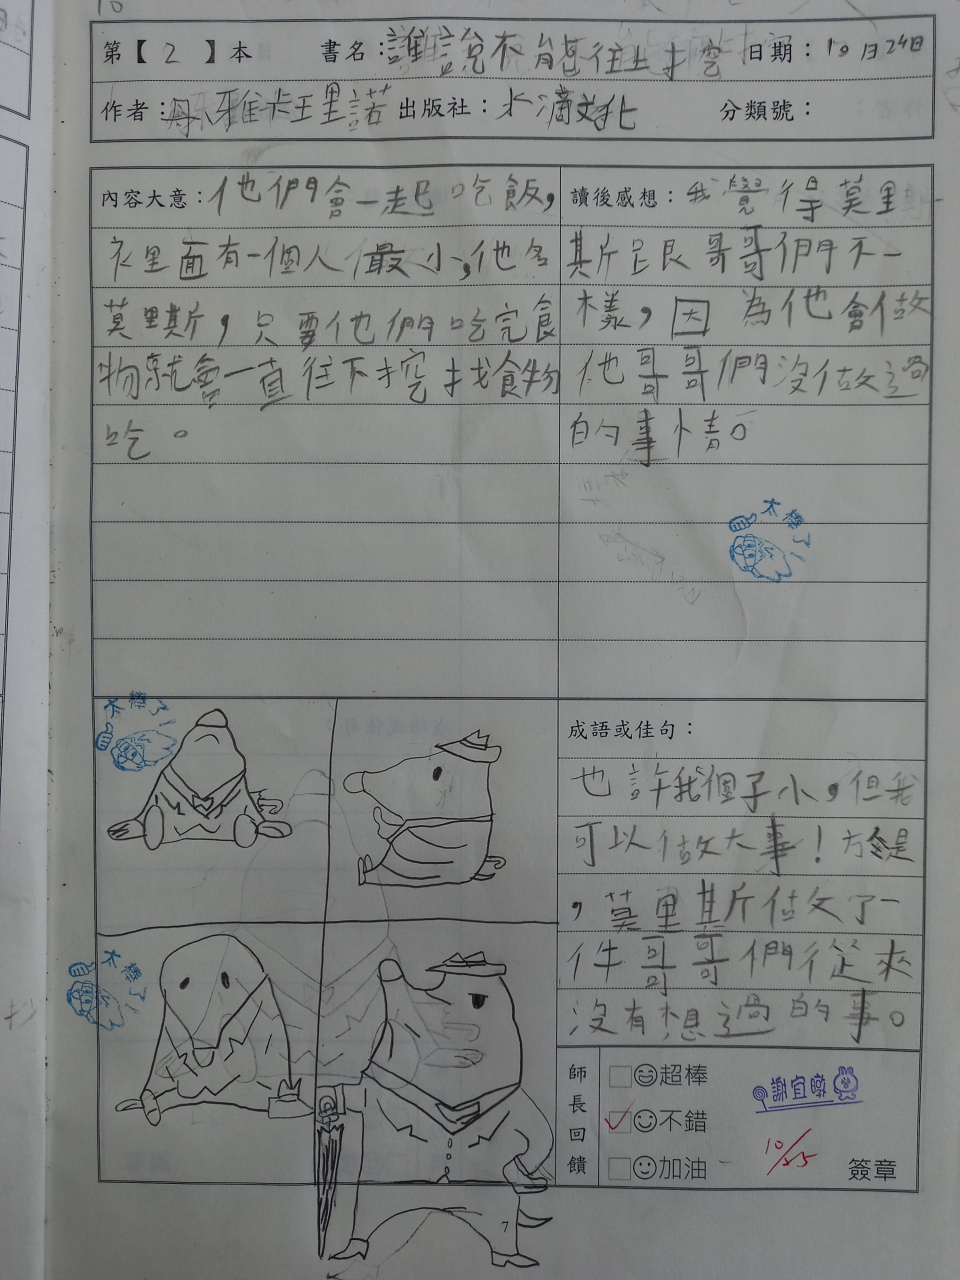 第【 2 】本 書名：誰說不能往上挖 日期：10月24日
作者：丹雅卡王里諾 出版社：水滴文化 分類號：
內容大意：他們會一起吃飯，
衣里面有一個人最小，他名
莫里斯，只要他們吃完食
物就會一直往下挖找食物
吃。
讀後感想：我覺得莫里
斯跟哥哥們不一
樣，因為他會做
他哥哥們沒做過
的事情。
太棒了!
太棒了!
太棒了!
成語或佳句：
也許我個子小，但我
可以做大事！於是
，莫里斯做了一
件哥哥們從來
沒有想過的事。
師長回饋
超棒
不錯
加油
謝宜
10/25
簽章